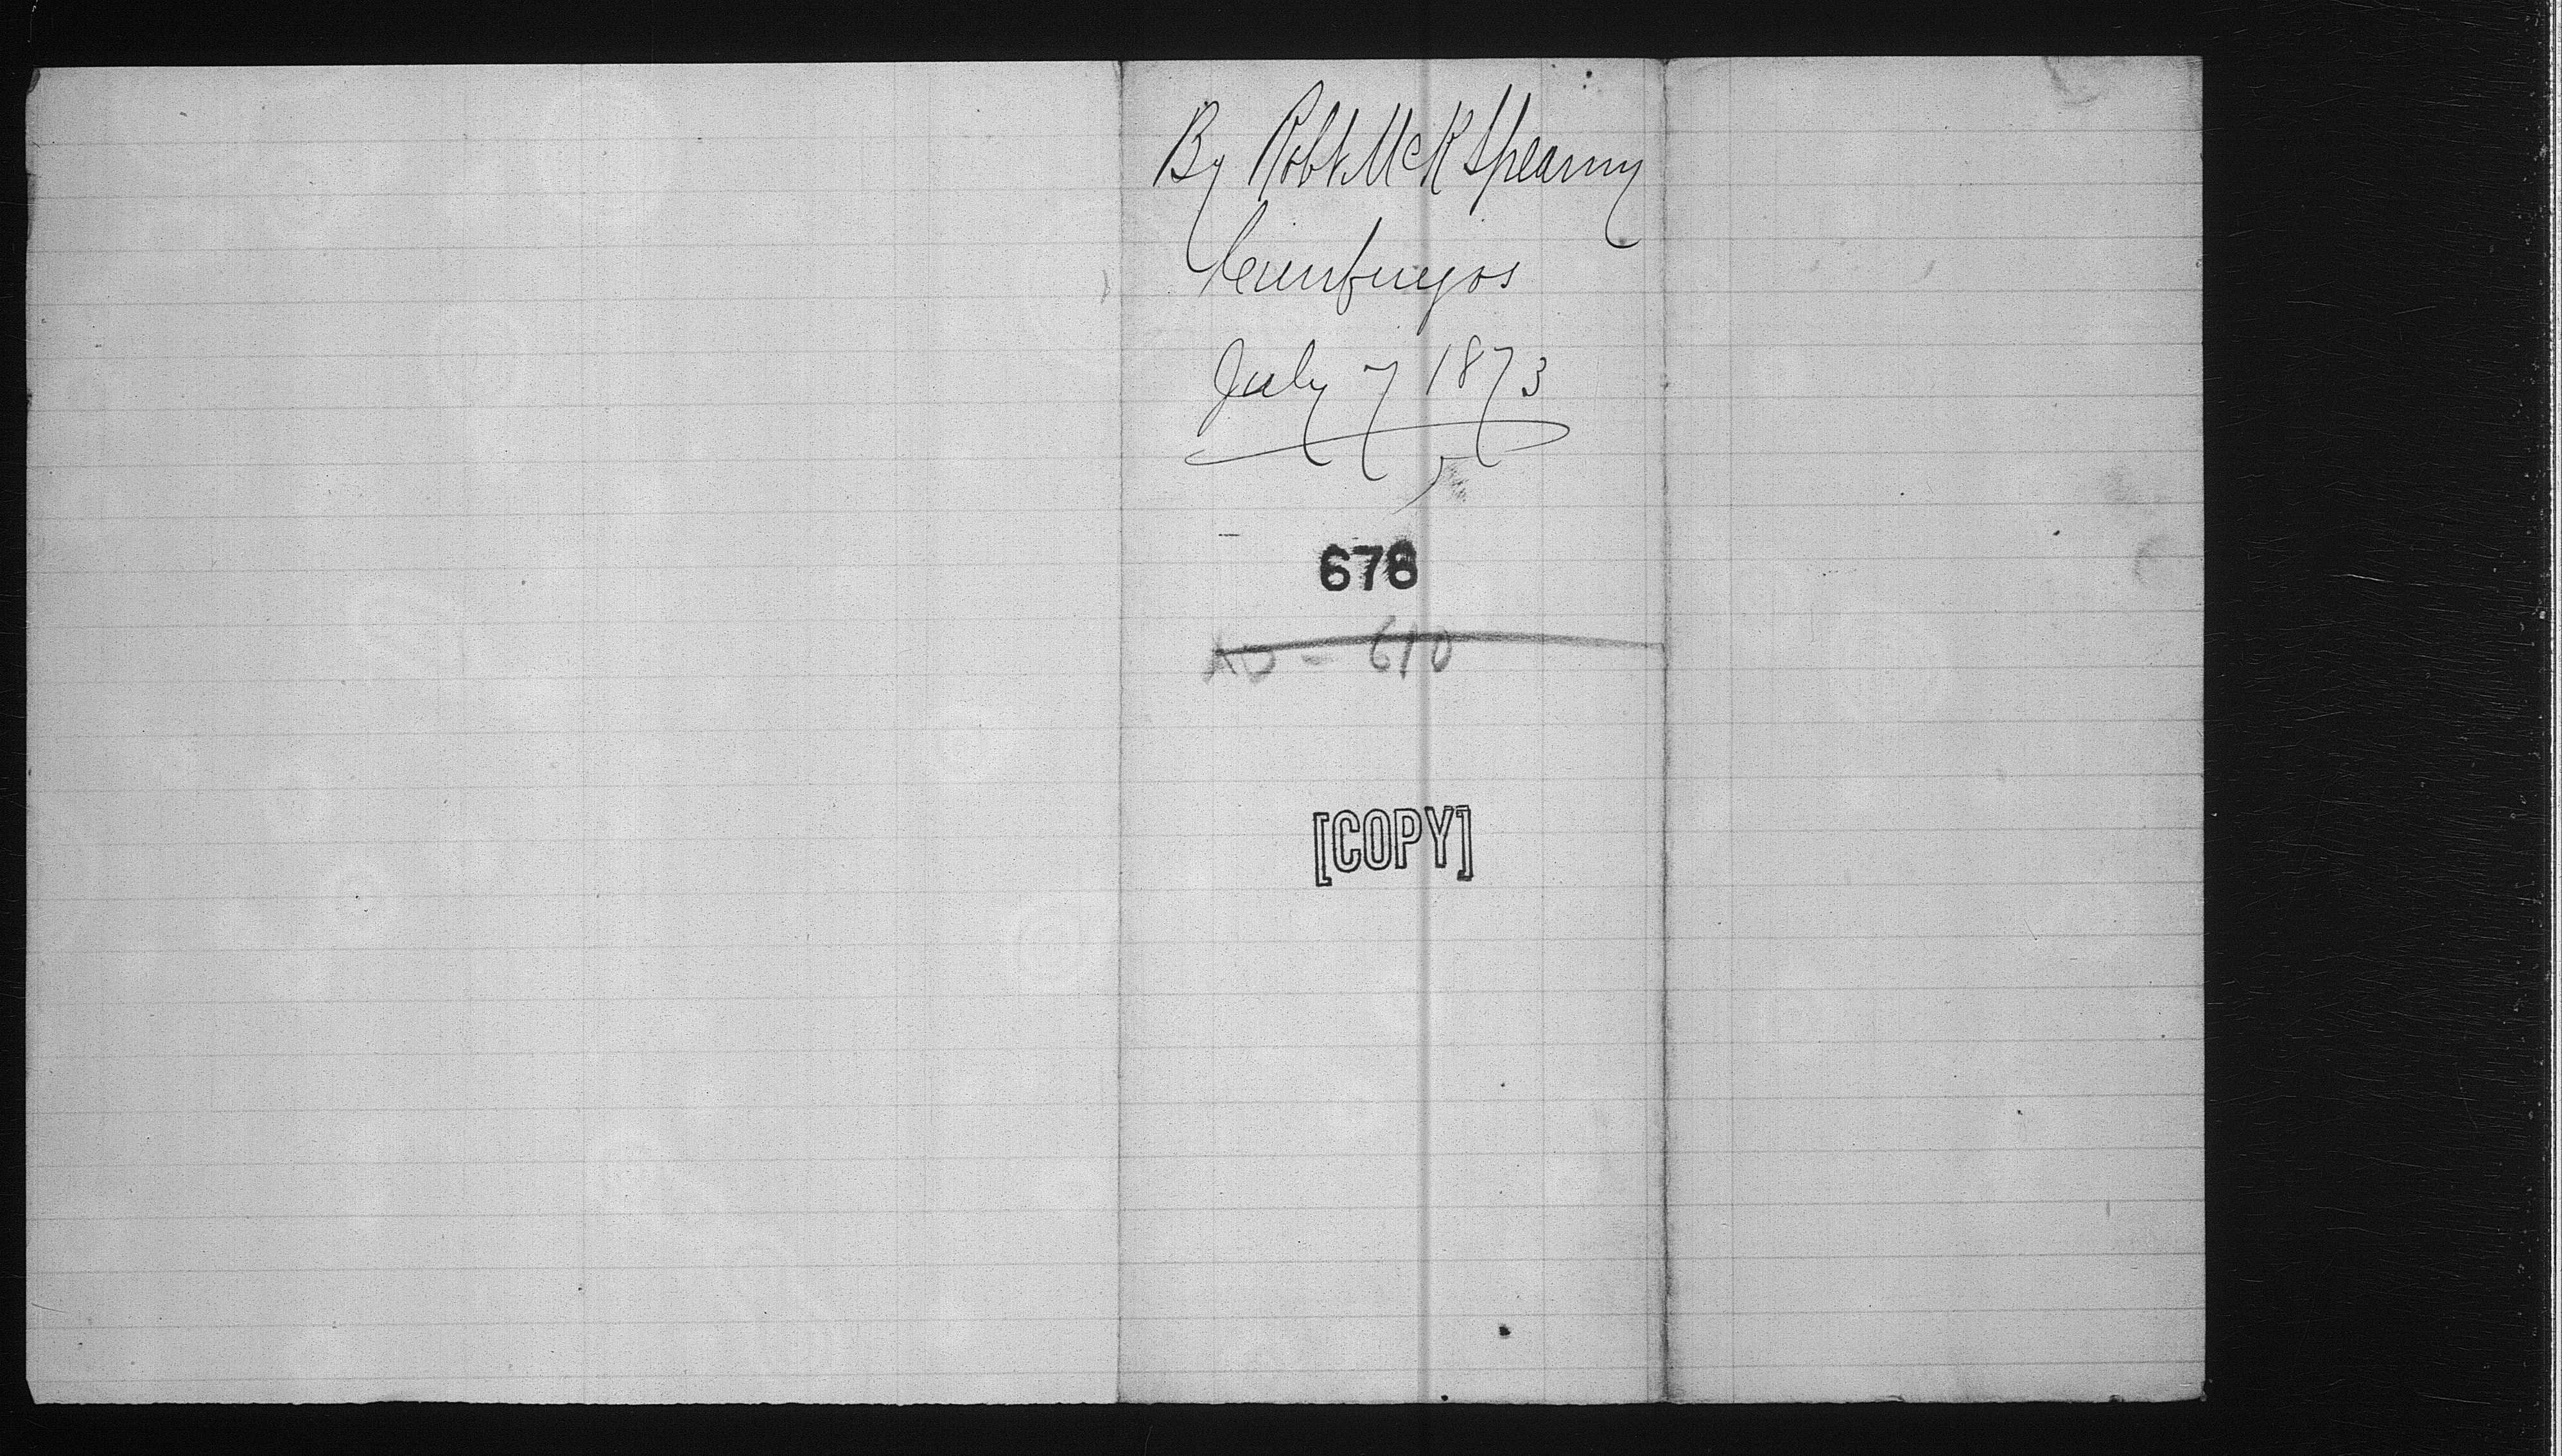 By Robt McK Spearing
Cienfuegos
July 7 1873
678
No - 610
[COPY]